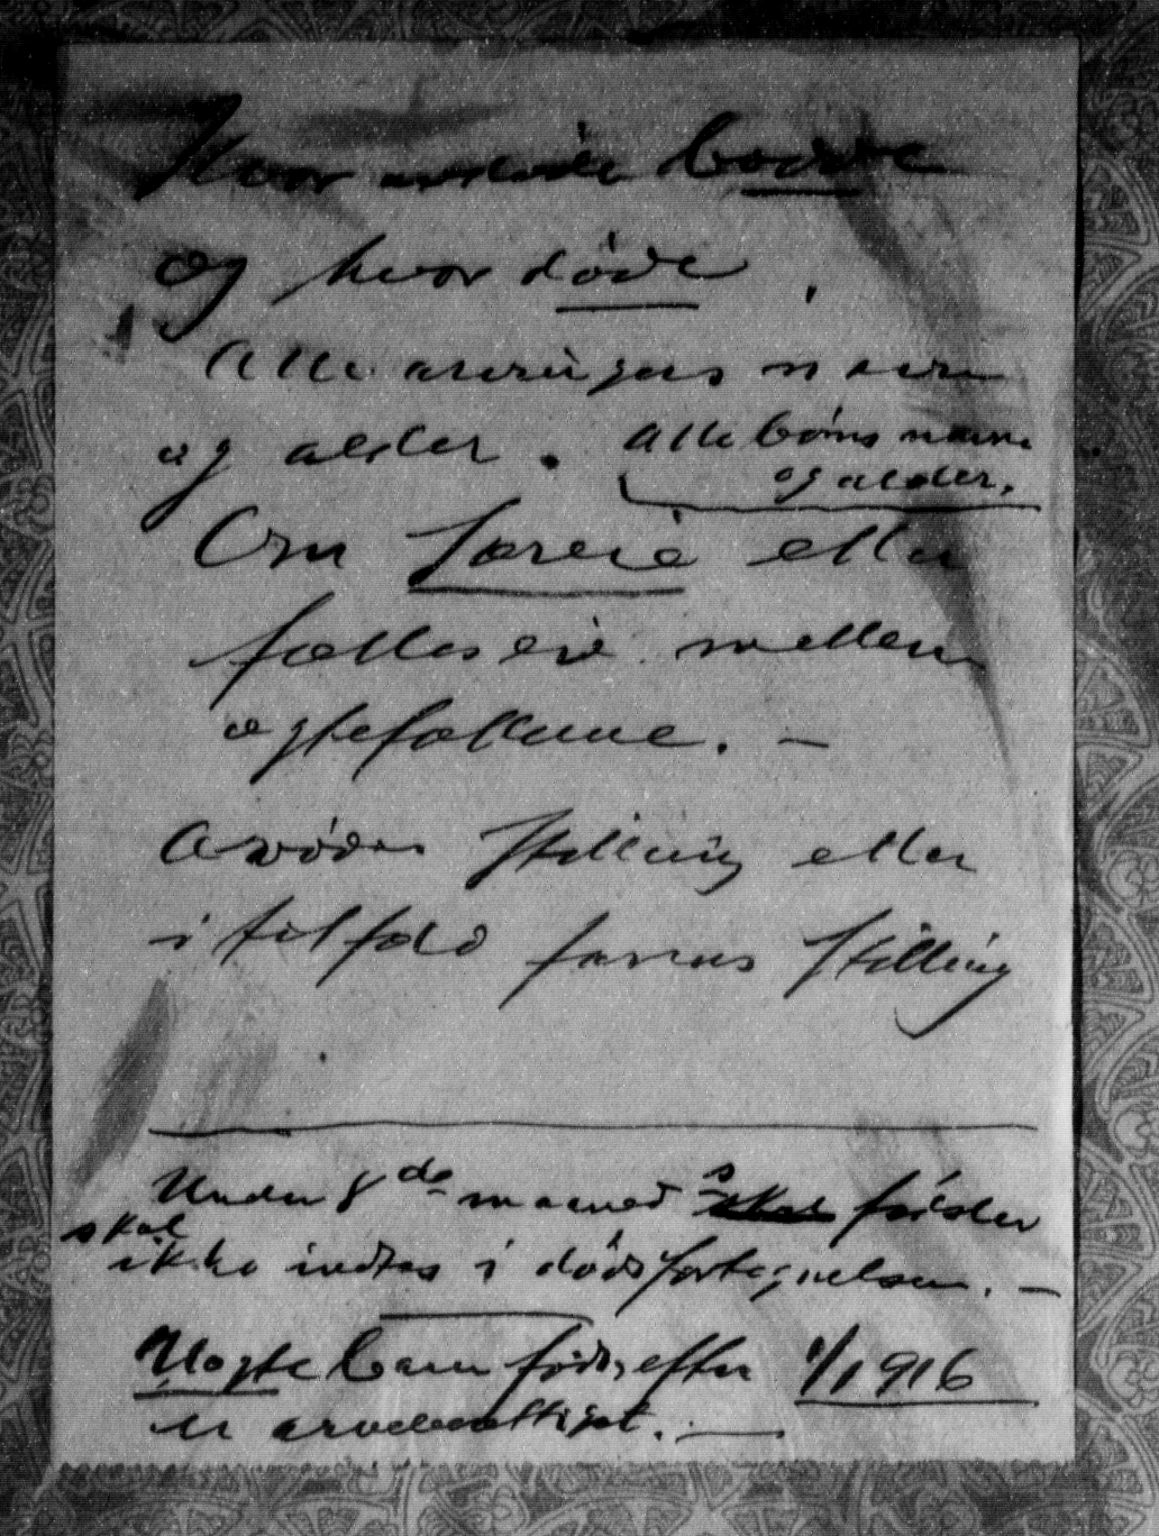 Hvor avdøde bodde
og hvor døde,
Alle arvingers navn
og alder. Alle børns navne
og alder.
Om særeie eller
fælleseie mellem
egtefællerne. —
Avdødes stilling eller
i tilfæld farens stilling
Under 8de maaned s fødsler
skal
ikke indtas i dødsfortegnelsen. —
Uegte barn født efter 1/1 916
er arveberettiget. —